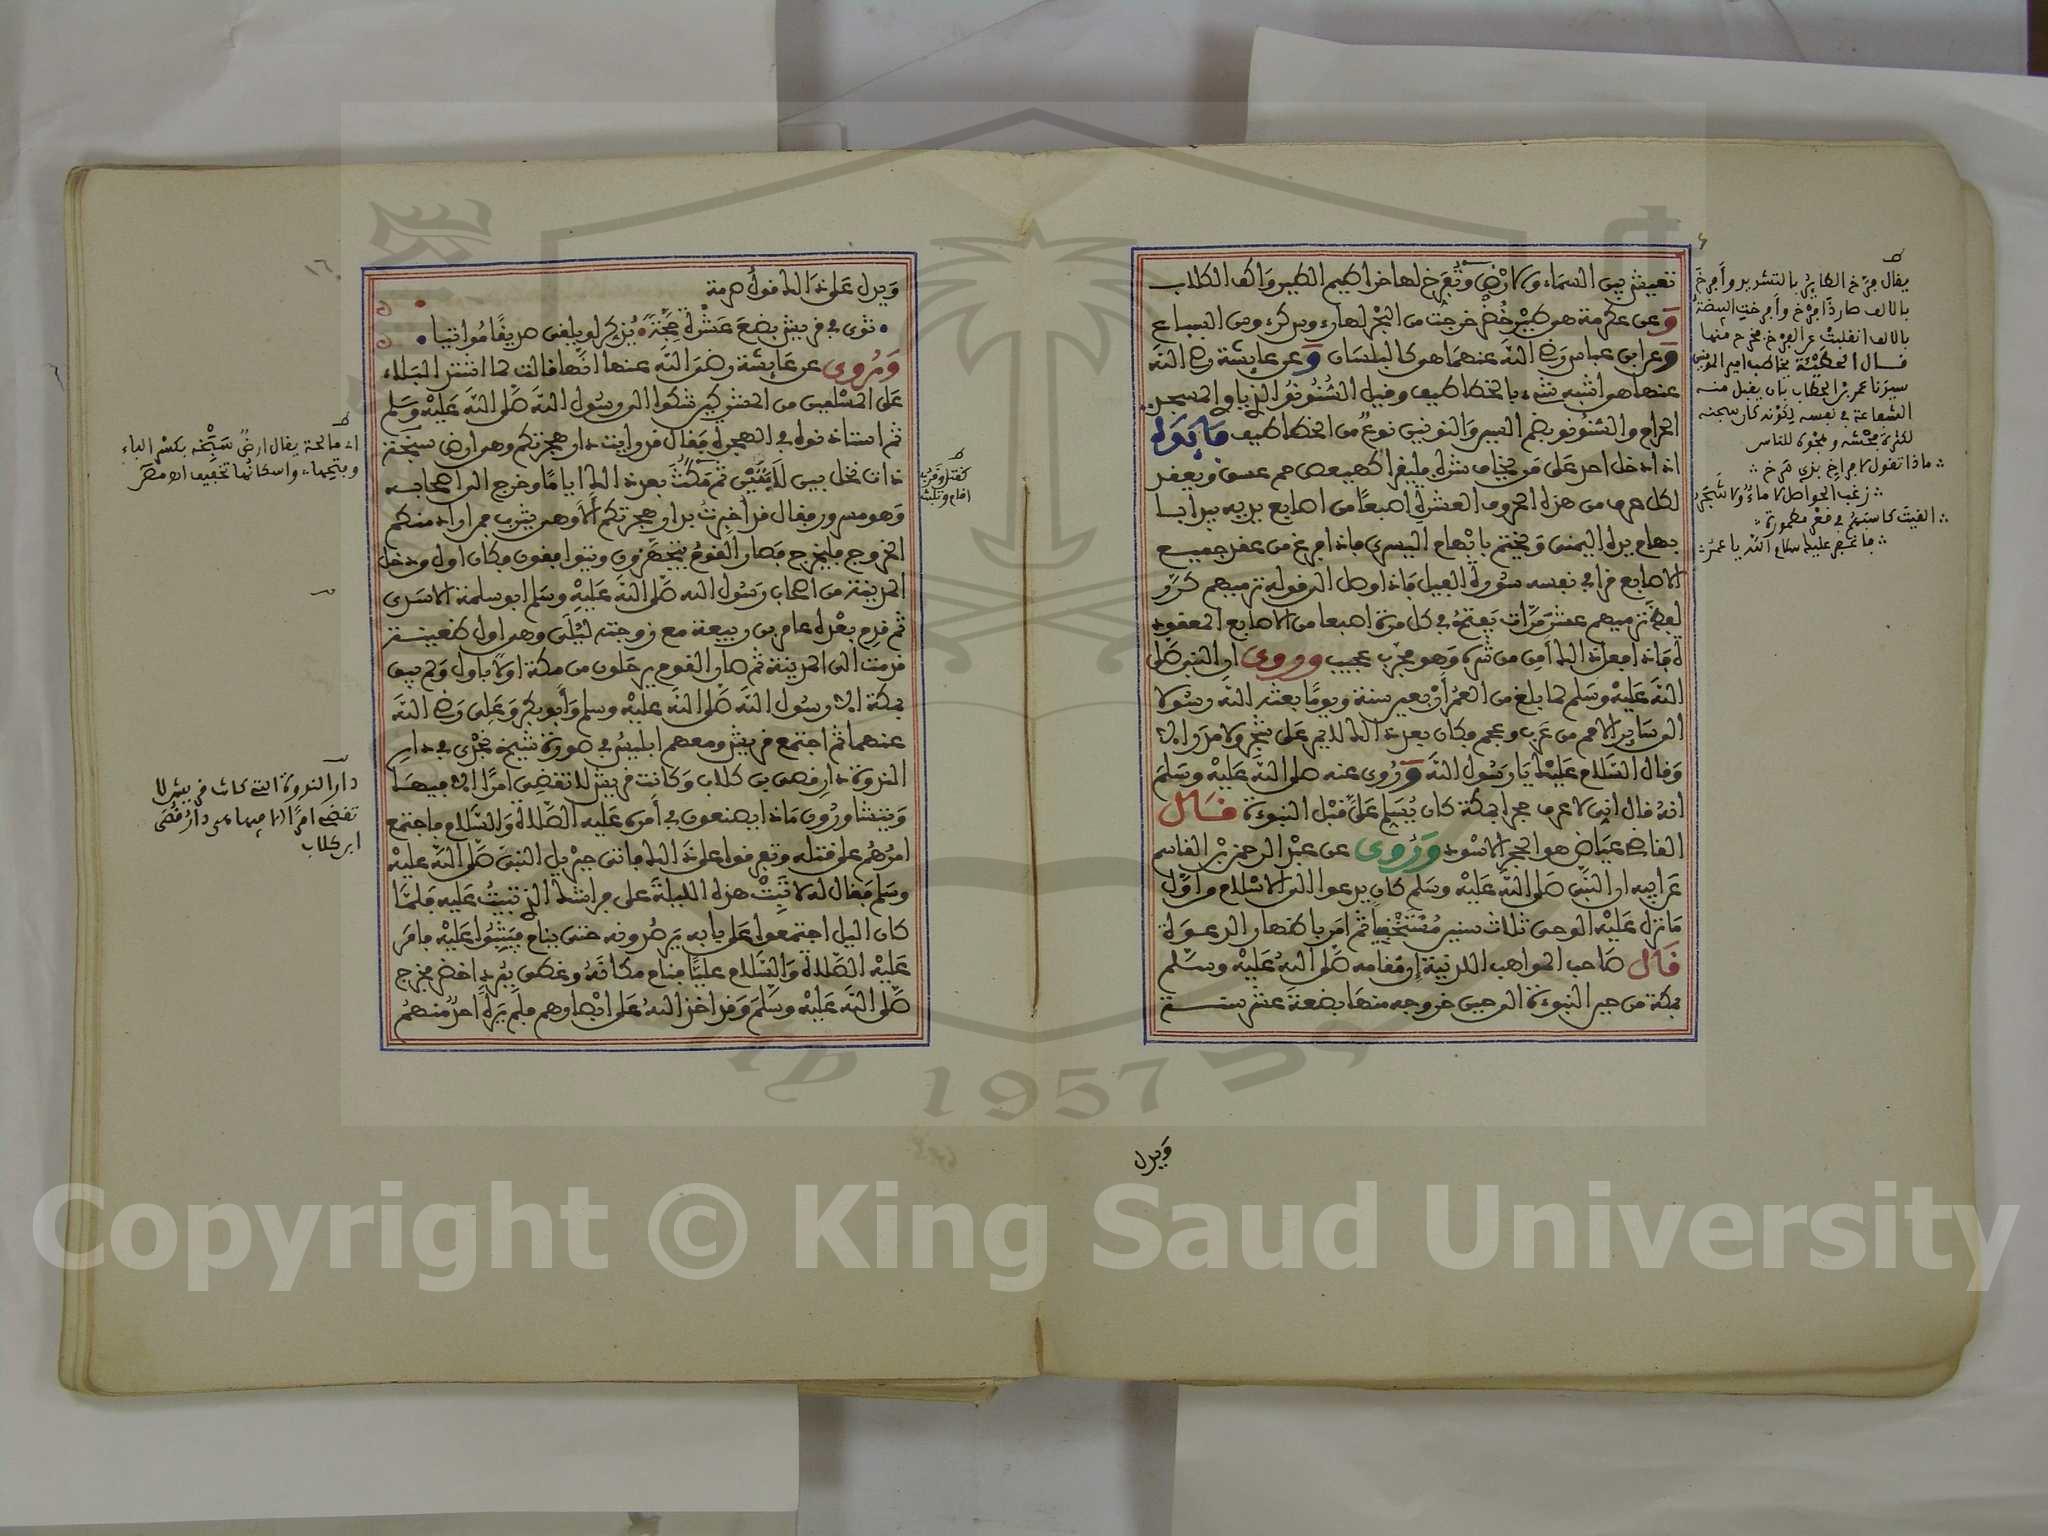 تعيش بين السماء والارض وتفرخ لها خراطيم الطير واكف الكلاب
وعن عكرمة هو طير خضر خرجت من البحر لها رءوس كرءوس السباع
وعن ابن عباس رضي الله عنهما هو كالبلسان وعن عايشة رضي الله
عنها هو اشبه شيء بالخطاطيف وقيل السنونو الذي ياوي المسجد
الحرام والسنونو بضم السين والنونين نوع من الخطاطيف فايدة
اذا دخل احد على من يخاف شره فليقرا كهيعص حم عسق ويعقد
لكل حرف من هذه الحروف العشرة اصبعا من اصابع يديه يبدأ با
بهام يده اليمنى ويختم بابهام اليسرى فاذا فرغ من عقد جميع
الاصابع قرا في نفسه سورة الفيل فاذا وصل الى قوله ترميهم كرر
لفظ ترميهم عشر مرات يفتح في كل مرة اصبعا من الاصابع المعقود
ة فاذا فعل ذلك امن من شره وهو مجرب عجيب وروي ان النبي صلى
الله عليه وسلم لما بلغ من العمر اربعين سنة ويوما بعثه الله رسولا
الى ساير الامم من عرب وعجم فكان بعد ذلك لا يمر على شجر ولا مدر الا
وقال السلام عليك يا رسول الله وروي عنه صلى الله عليه وسلم
انه قال اني لاعرف حجرا بمكة كان يسلم علي قبل النبوءة قال
القاضي عياض هو الحجر الاسود وروي عن عبد الرحمن بن القاسم
عن ابيه ان النبي صلى الله عليه وسلم كان يدعو الى الاسلام من اول
ما نزل عليه الوحي ثلاث سنين مستخفيا ثم امر باظهار الدعوة
قال صاحب المواهب اللدنية ان مقامه صلى الله عليه وسلم
بمكة من حين النبوءة الى حين خروجه منها بضعة عشر سنة
ويدل
ط
يقال فرخ الطاير بالتشديد وأفرخ
بالالف صار ذا فرخ وأفرخت البيضة
بالالف انفلقت عن الفرخ فخرج منها
قال الحطيئة يخاطب امير المومنين
سيدنا عمر بن الخطاب بان يقبل منه
الشفاعة في نفسه لكونه كان سجنه
لكثرة فحشه وهجوه للناس
ماذا تقول لافراخ بذي مرخ
زغب الحواصل لا ماء ولا شجر
القيت كاسبهم في قعر مظلمة
فاغفر عليك سلام الله يا عمر
ويدل على ذلك قول صرمة
ثوى في قريش بضع عشرة حجة يذكر لو يلقى صديقا مواتيا
وروي عن عايشة رضي الله عنها انها قالت لما اشتد البلاء
على المسلمين من المشركين شكوا الى رسول الله صلى الله عليه وسلم
ثم استاذنوه في الهجرة فقال قد رايت دار هجرتكم وهو ارض سبخة
ذات نخل بين لابتين ثم مكث بعد ذلك اياما وخرج الى اصحابه
وهو مسرور فقال قد اخبرت بدار هجرتكم ألا وهي يثرب فمن اراد منكم
الخروج فليخرج فصار القوم يتجهزون ويتوافقون فكان اول من دخل
المدينة من اصحاب رسول الله صلى الله عليه وسلم ابو سلمة الاسدي
ثم قدم بعده عامر بن ربيعة مع زوجته ليلى وهي اول ظعينة
قدمت الى المدينة ثم صار القوم يرحلون من مكة اولا باول ولم يبق
بمكة الا رسول الله صلى الله عليه وسلم وأبو بكر وعلي رضي الله
عنهما ثم اجتمع قريش ومعهم ابليس في صورة شيخ نجدي في دار
الندوة دار قصي بن كلاب وكانت قريش لا تقضي امرا الا فيها
ويتشاورون ماذا يصنعون في أمره عليه الصلاة والسلام فاجتمع
امرهم على قتله وتفرقوا على ذلك فاتى جبريل النبي صلى الله عليه
وسلم فقال له لا تبت هذه الليلة على فراشك الذي تبيت عليه فلما
كان اليل اجتمعوا على بابه يرصدونه حتى ينام فيثبوا عليه فامر
عليه الصلاة والسلام عليا فنام مكانه وغطي ببرد اخضر فخرج
صلى الله عليه وسلم وقد اخذ الله على ابصارهم فلم يره احد منهم
ط
اي مالحة يقال ارض سبخة بكسر الباء
وبفتحها واسكانها تخفيف اه مصر
دار الندوة التي كانت قريش لا
تقضي امرا الا فيها هي دار قصي
ابن كلاب
١٦
Copyright © King Saud University
1957